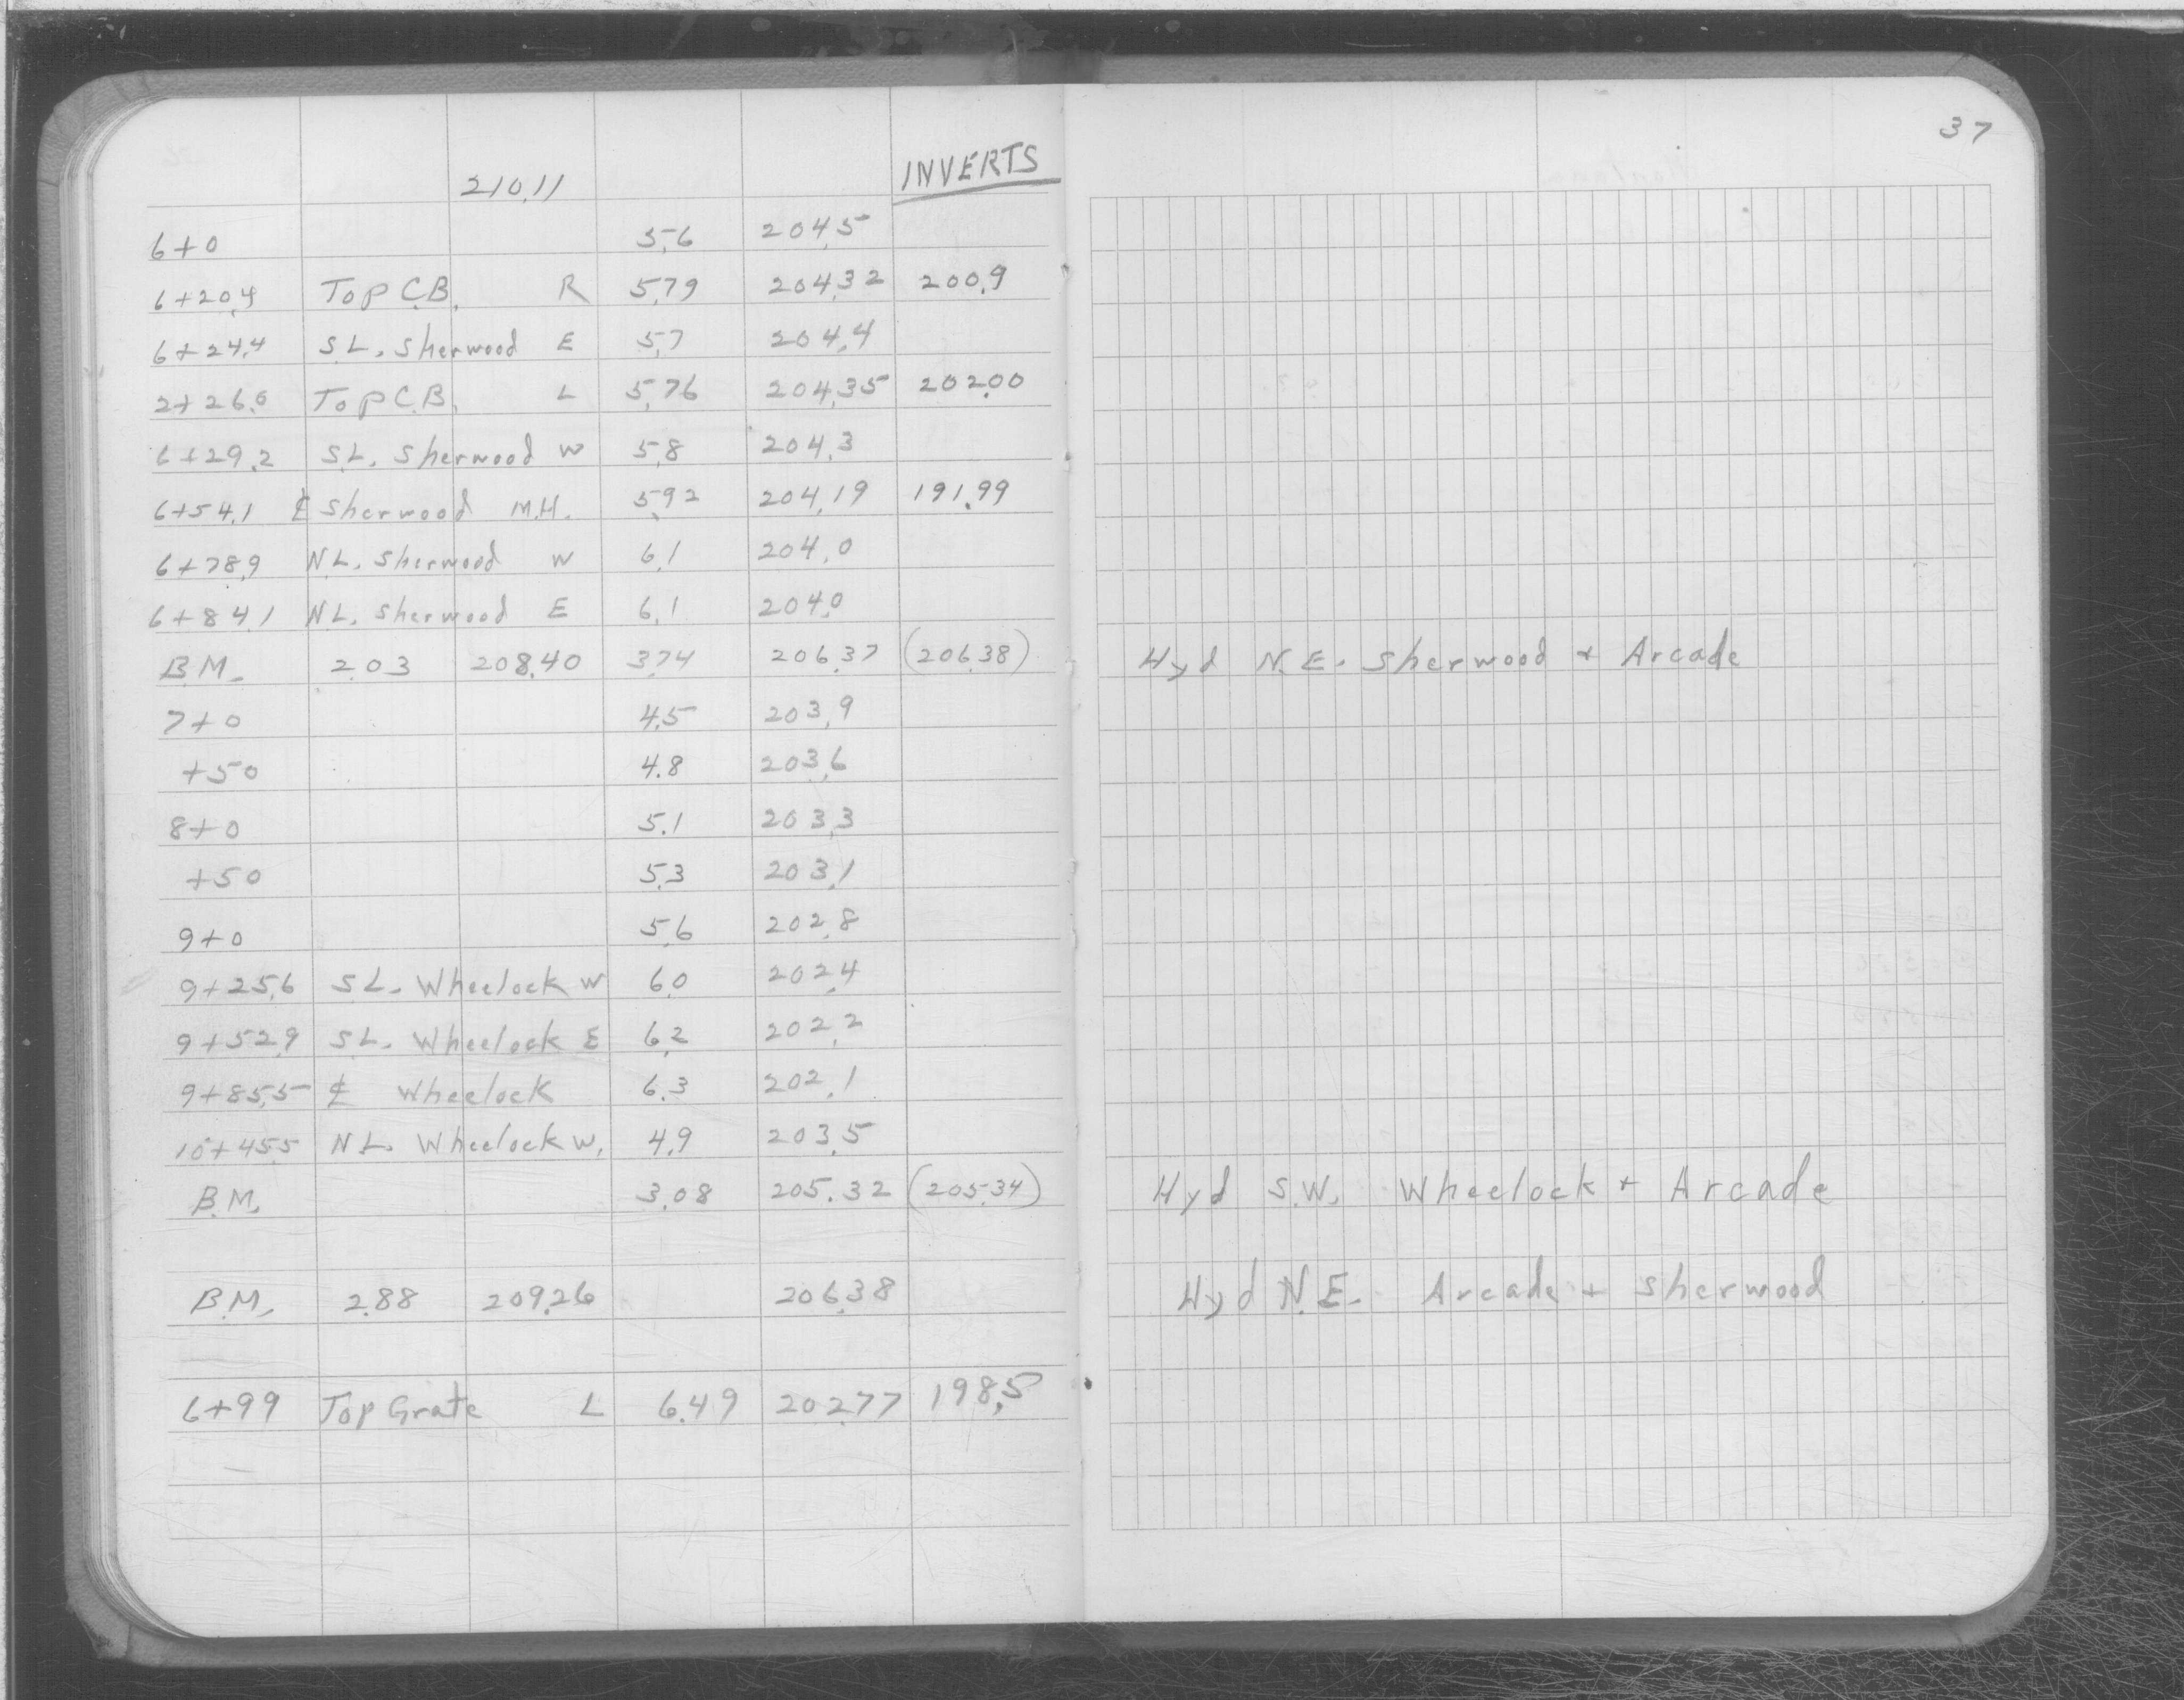 37
INVERTS
210.11
6+0 5.6 204.5
6+20.4 Top C.B. R 5.79 204.32 200.9
6+24.4 S.L. Sherwood E 5.7 204.4
2+26.0 Top C.B. L 5.76 204.35 202.00
6+29.2 S.L. Sherwood W 5.8 204.3
6+54.1 ℄ Sherwood M.H. 5.92 204.19 191.99
6+78.9 N.L. Sherwood W 6.1 204.0
6+84.1 N.L. Sherwood E 6.1 204.0
B.M. 2.03 208.40 3.74 206.37 (206.38) Hyd N.E. Sherwood + Arcade
7+0 4.5 203.9
+50 4.8 203.6
8+0 5.1 203.3
+50 5.3 203.1
9+0 5.6 202.8
9+25.6 S.L. Wheelock W 6.0 202.4
9+52.9 S.L. Wheelock E 6.2 202.2
9+85.5 ℄ Wheelock 6.3 202.1
10+45.5 N.L. Wheelock W. 4.9 203.5
B.M. 3.08 205.32 (205.34) Hyd S.W. Wheelock + Arcade
B.M. 2.88 209.26 206.38 Hyd N.E. Arcade + Sherwood
6+99 Top Grate L 6.49 202.77 198.5